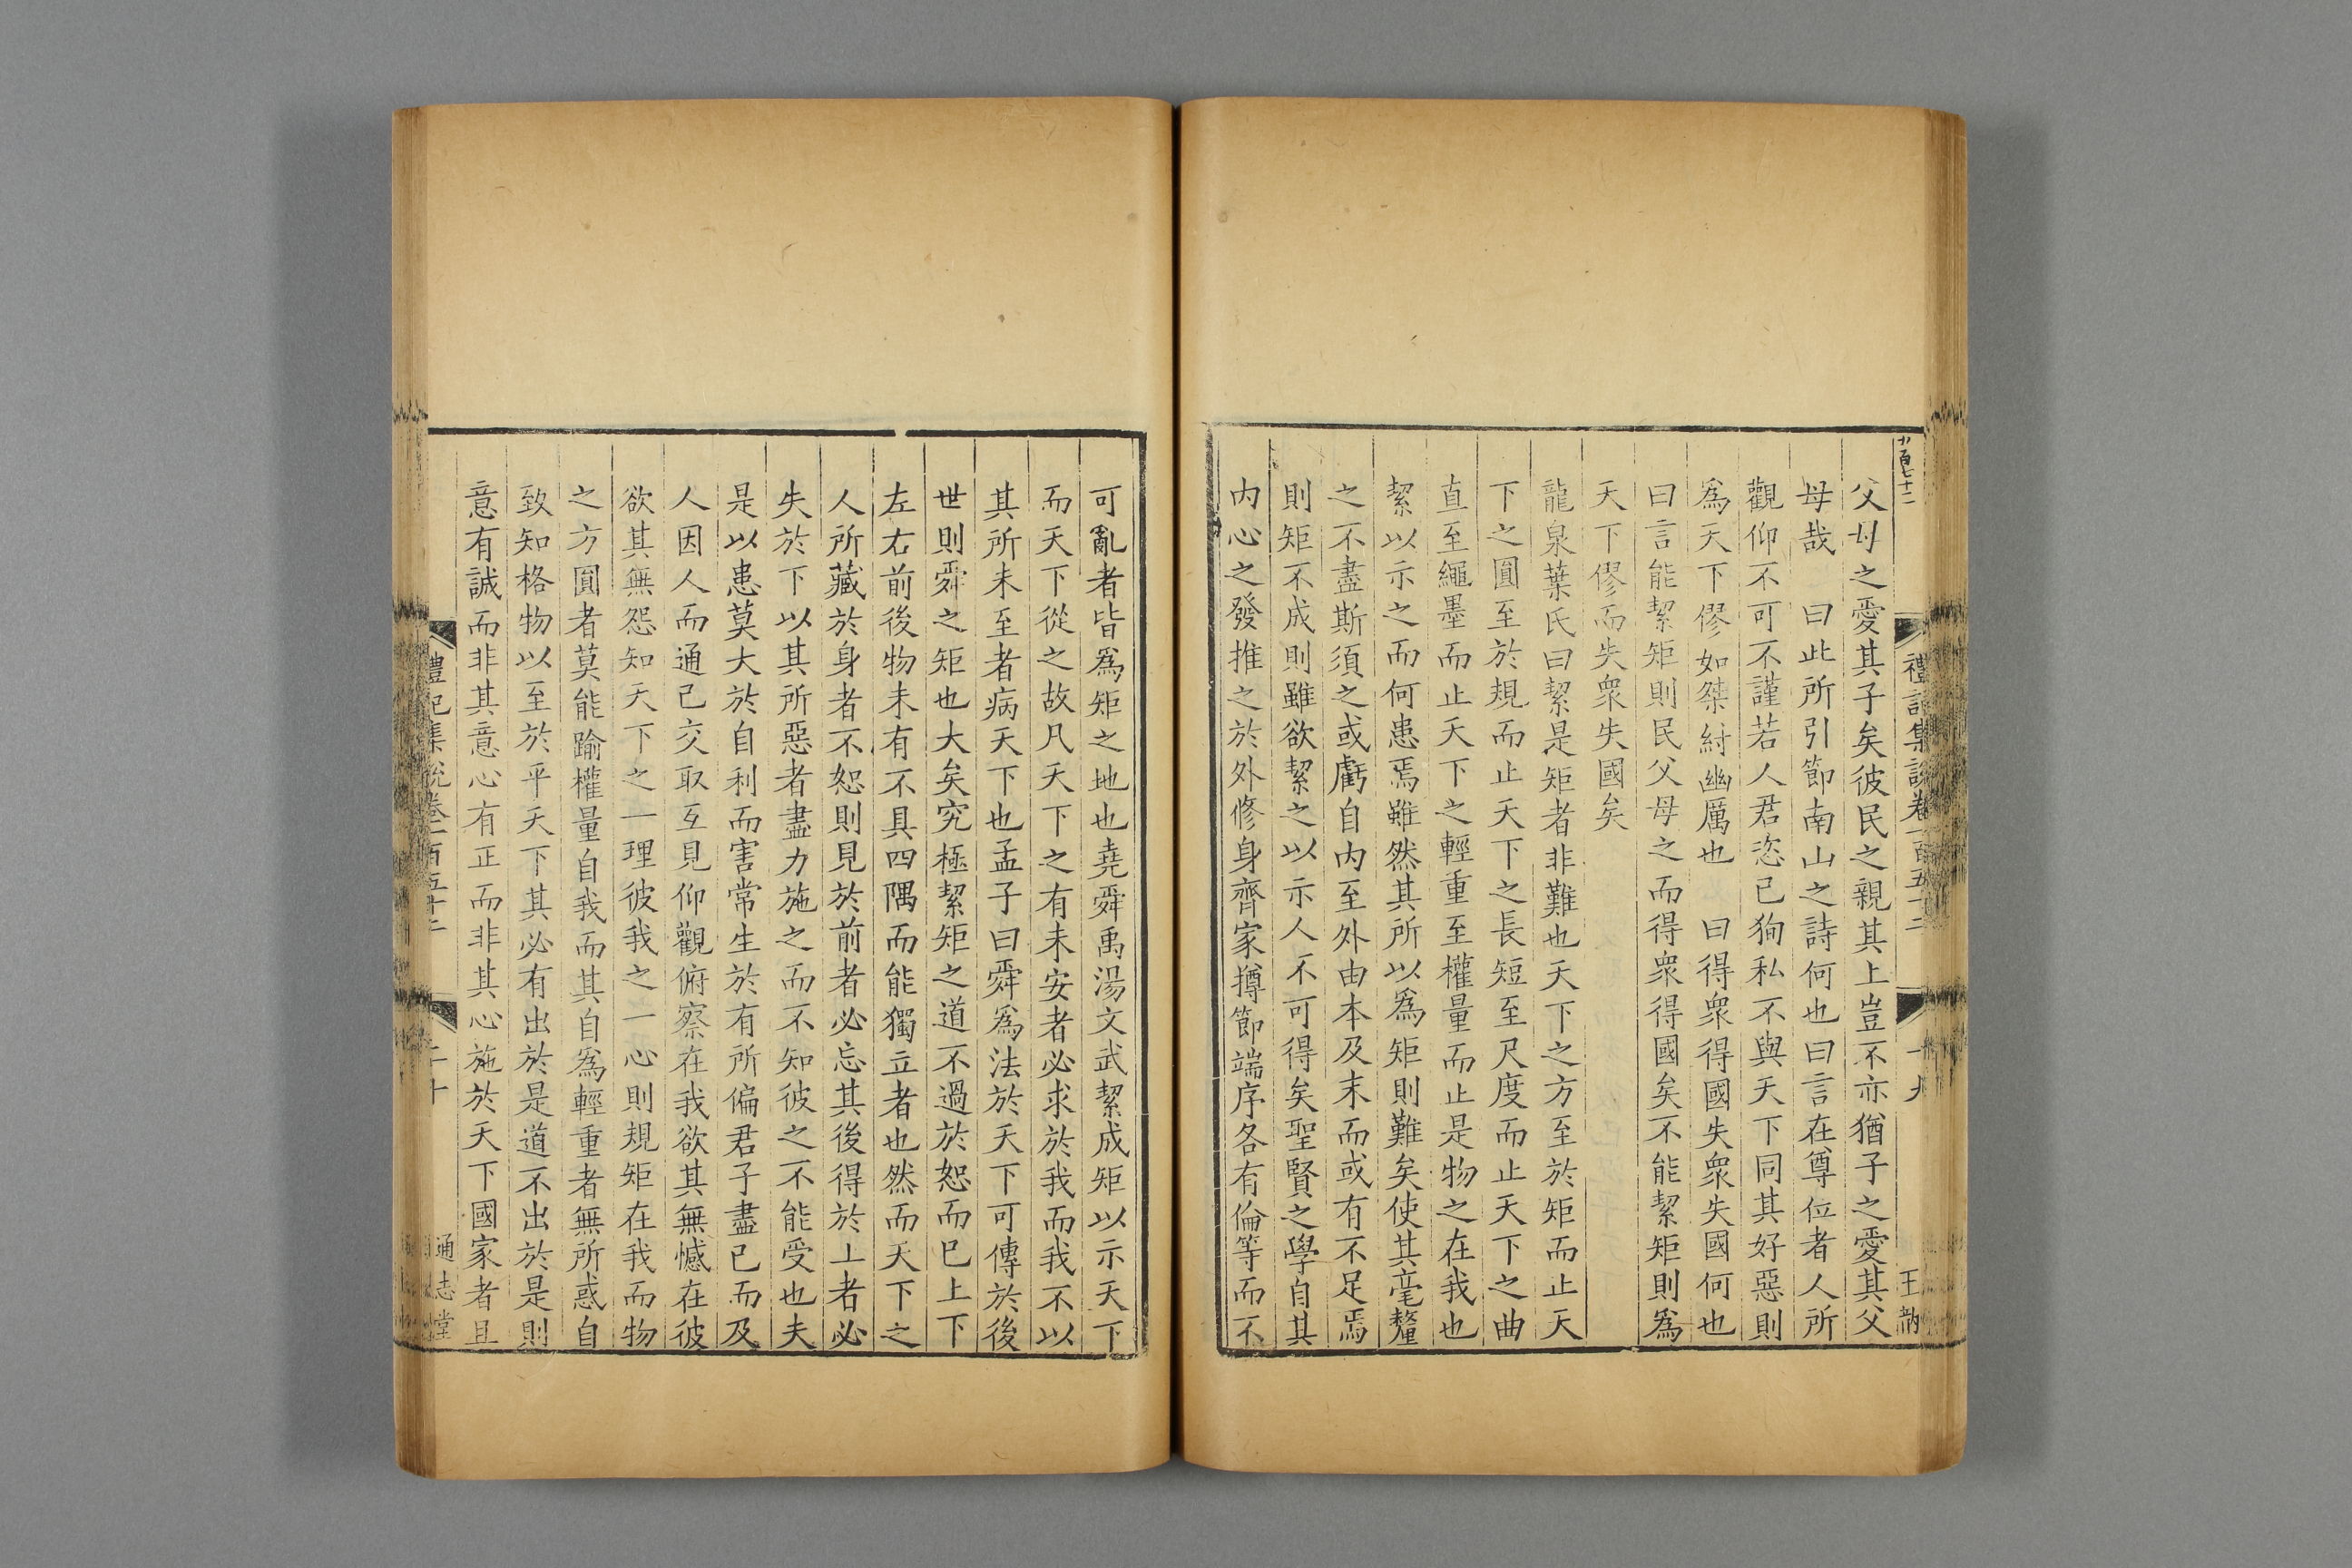 禮記集說卷一百五十二
十九
父母之愛其子矣彼民之親其上豈不亦猶子之愛其父
母哉　曰此所引節南山之詩何也曰言在尊位者人所
觀仰不可不謹若人君恣己狥私不與天下同其好惡則
爲天下僇如桀紂幽厲也　曰得衆得國失衆失國何也
曰言能絜矩則民父母之而得衆得國矣不能絜矩則爲
天下僇而失衆失國矣
龍泉葉氏曰絜是矩者非難也天下之方至於矩而止天
下之圓至於規而止天下之長短至尺度而止天下之曲
直至繩墨而止天下之輕重至權量而止是物之在我也
絜以示之而何患焉雖然其所以爲矩則難矣使其毫釐
之不盡斯須之或虧自內至外由本及末而或有不足焉
則矩不成則雖欲絜之以示人不可得矣聖賢之學自其
內心之發推之於外修身齊家撙節端序各有倫等而不
可亂者皆爲矩之地也堯舜禹湯文武絜成矩以示天下
而天下從之故凡天下之有未安者必求於我而我不以
其所未至者病天下也孟子曰舜爲法於天下可傳於後
世則舜之矩也大矣究極絜矩之道不過於恕而已上下
左右前後物未有不具四隅而能獨立者也然而天下之
人所藏於身者不恕則見於前者必忘其後得於上者必
失於下以其所惡者盡力施之而不知彼之不能受也夫
是以患莫大於自利而害常生於有所偏君子盡己而及
人因人而通己交取互見仰觀俯察在我欲其無憾在彼
欲其無怨知天下之一理彼我之一心則規矩在我而物
之方圓者莫能踰權量自我而其自爲輕重者無所惑自
致知格物以至於平天下其必有出於是道不出於是則
意有誠而非其意心有正而非其心施於天下國家者且
禮記集說卷一百五十二
二十
通志堂